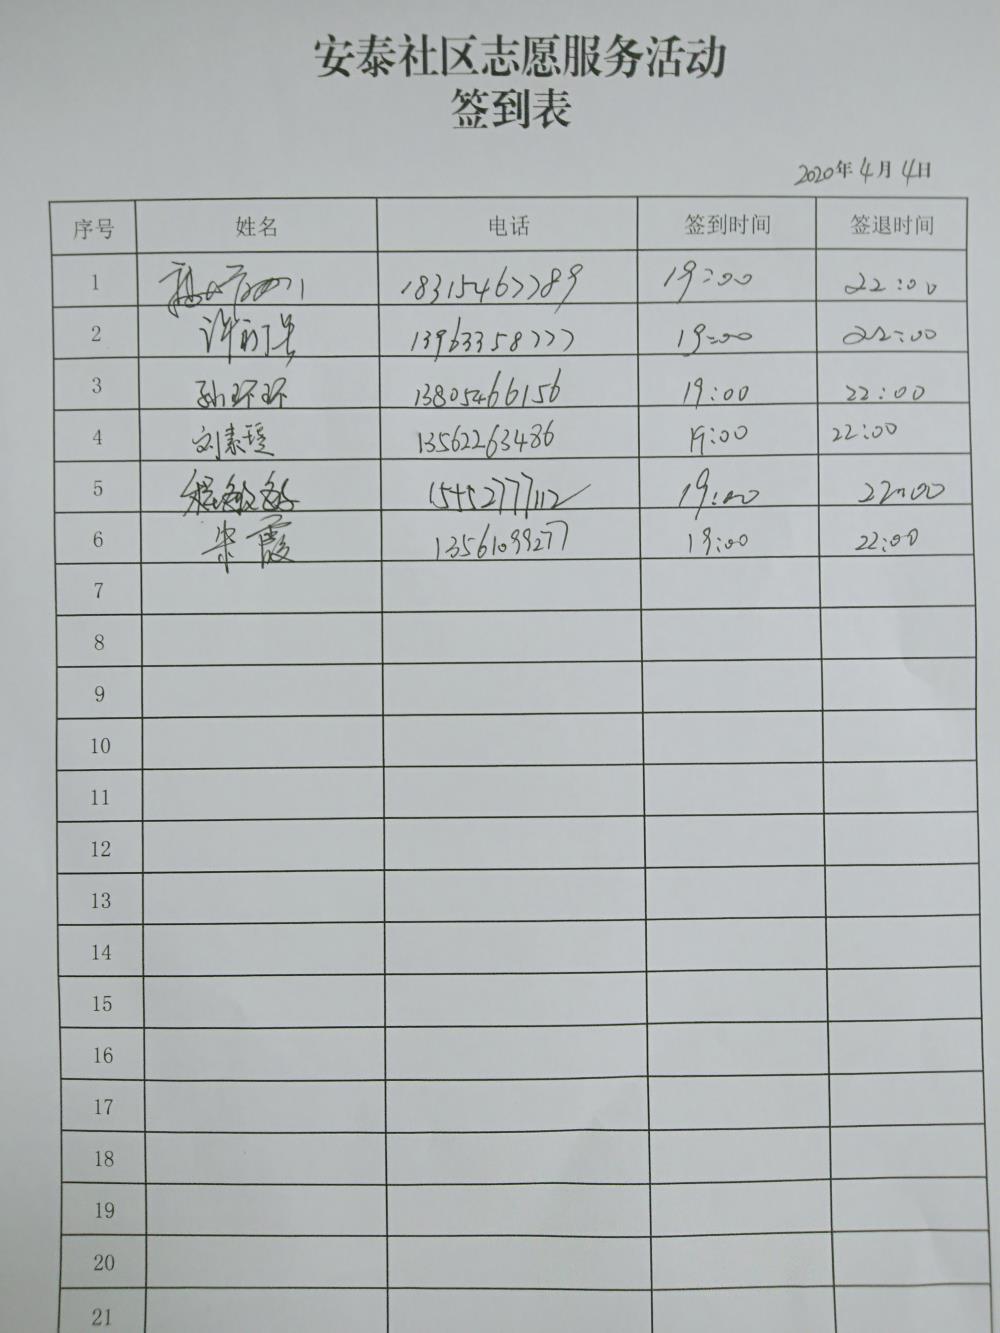 安泰社区志愿服务活动
签到表
2020年4月4日
序号 姓名 电话 签到时间 签退时间
1 18315467789 19:00 22:00
2 13963358777 19:00 22:00
3 孙环环 13805466156 19:00 22:00
4 刘素瑶 13562263486 19:00 22:00
5 程敏敏 15452777112 19:00 22:00
6 宋霞 13561099277 19:00 22:00
7
8
9
10
11
12
13
14
15
16
17
18
19
20
21